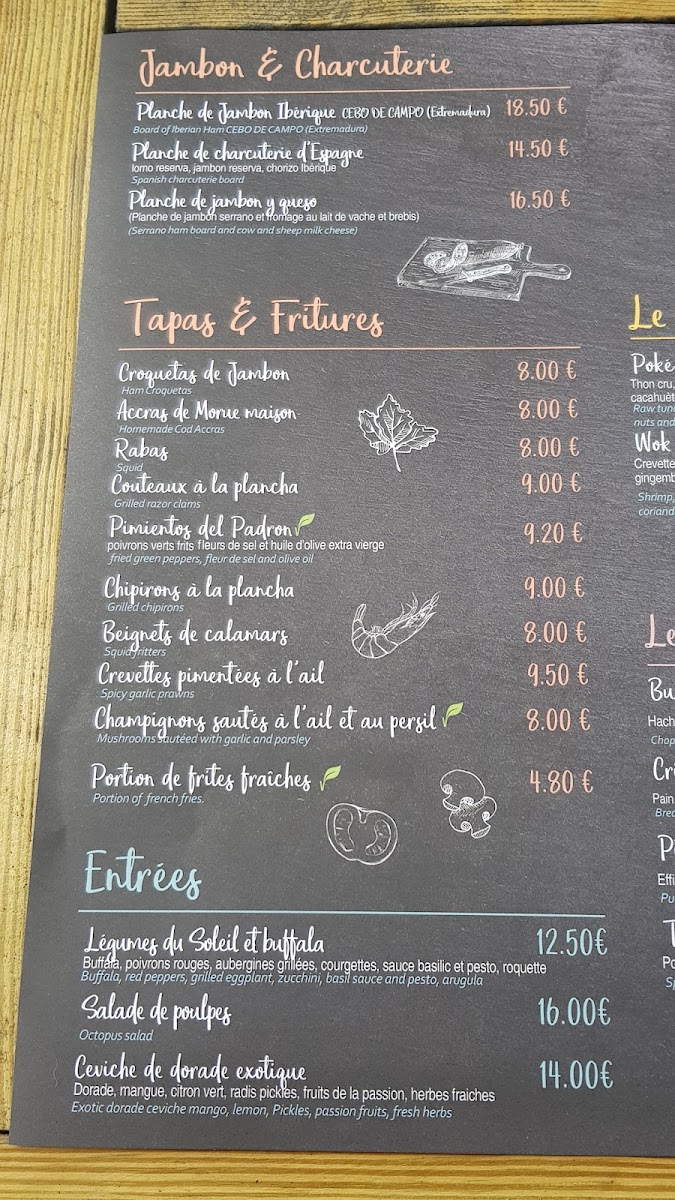 Jambon & Charcuterie
Planche de Jambon Ibérique CEBO DE CAMPO (Extremadura) 18.50 €
Board of Iberian Ham CEBO DE CAMPO (Extremadura)
Planche de charcuterie d'Espagne 14.50 €
lomo reserva, jambon reserva, chorizo Ibérique
Spanish charcuterie board
Planche de jambon y queso 16.50 €
(Planche de jambon serrano et fromage au lait de vache et brebis)
(Serrano ham board and cow and sheep milk cheese)
Tapas & Fritures
Croquetas de Jambon 8.00 €
Ham Croquetas
Accras de Morue maison 8.00 €
Homemade Cod Accras
Rabas 8.00 €
Squid
Couteaux à la plancha 9.00 €
Grilled razor clams
Pimientos del Padron 9.20 €
poivrons verts frits fleurs de sel et huile d'olive extra vierge
fried green peppers, fleur de sel and olive oil
Chipirons à la plancha 9.00 €
Grilled chipirons
Beignets de calamars 8.00 €
Squid fritters
Crevettes pimentées à l'ail 9.50 €
Spicy garlic prawns
Champignons sautés à l'ail et au persil 8.00 €
Mushrooms sautéed with garlic and parsley
Portion de frites fraîches 4.80 €
Portion of french fries.
Entrées
Légumes du Soleil et buffala 12.50€
Buffala, poivrons rouges, aubergines grillées, courgettes, sauce basilic et pesto, roquette
Buffala, red peppers, grilled eggplant, zucchini, basil sauce and pesto, arugula
Salade de poulpes 16.00€
Octopus salad
Ceviche de dorade exotique 14.00€
Dorade, mangue, citron vert, radis pickles, fruits de la passion, herbes fraiches
Exotic dorade ceviche mango, lemon, Pickles, passion fruits, fresh herbs
Le
Poké
Thon cru,
cacahuèt
Raw tun
nuts and
Wok
Crevette
gingemb
Shrimp,
coriand
Le
Bu
Hach
Chop
Cr
Pain
Brea
P
Effi
Pu
T
Po
Sp